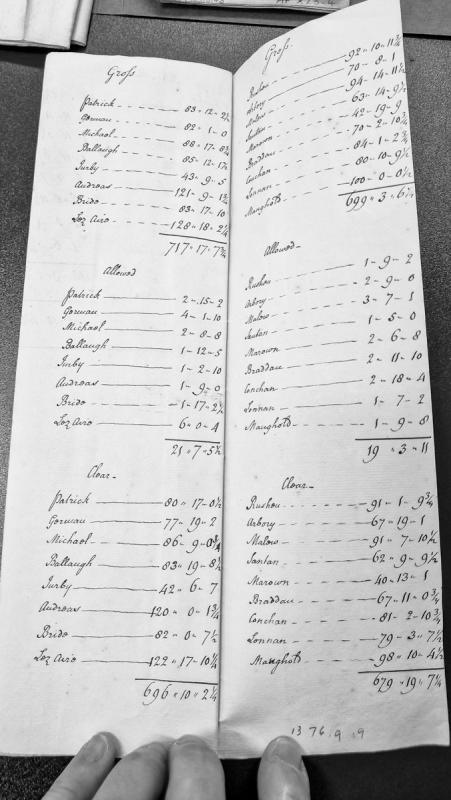 Gross
Patrick - - - - - 83 - 12 - 2½
Gorman - - - - - 82 - 1 - 0
Michael - - - - - 88 - 17 - 8¾
Ballaugh - - - - 85 - 12 - 1½
Jurby - - - - - 43 - 9 - 5
Andreas - - - - 121 - 9 - 1¾
Bride - - - - - 83 - 17 - 10
Lez Airo - - - - 128 - 18 - 2¼
717 " 17 " 7¾
Allowed
Patrick 2 - 15 - 2
Gorman 4 - 1 - 10
Michael 2 - 8 - 8
Ballaugh 1 - 12 - 5
Jurby 1 - 2 - 10
Andreas 1 - 9 - 0
Bride 1 - 17 - 2½
Lez Airo 6 " 0 - 4
21 " 7 " 5½
Clear -
Patrick 80 " 17 - 0½
Gorman 77 - 19 - 2
Michael 86 - 9 - 0¾
Ballaugh 83 " 19 - 8½
Jurby 42 " 6 - 7
Andreas 120 " 0 - 1¾
Bride 82 " 0 - 7½
Lez Airo 122 " 17 - 10¼
696 " 10 " 2¼
Gross
Rushen 92 - 10 - 11¾
Arbory 70 - 8 - 1
Malew 94 - 14 - 11½
Santan 63 - 14 - 9½
Marown 42 - 19 - 9
Braddan 70 - 2 - 10¾
Conchan 84 - 1 - 2¾
Lonnan 80 - 10 - 9½
Maughold 100 - 0 - 0½
699 " 3 " 6½
Allowed -
Rushen 1 - 9 - 2
Arbory 2 - 9 - 0
Malew 3 - 7 - 1
Santan 1 - 5 - 0
Marown 2 - 6 - 8
Braddan 2 - 11 - 10
Conchan 2 - 18 - 4
Lonnan 1 - 7 - 2
Maughold 1 - 9 - 8
19 " 3 " 11
Clear -
Rushen 91 - 1 - 9¾
Arbory 67 - 19 - 1
Malew 91 " 7 - 10½
Santan 62 " 9 - 9½
Marown 40 " 13 - 1
Braddan 67 - 11 - 0¾
Conchan 81 - 2 - 10¾
Lonnan 79 - 3 - 7½
Maughold 98 " 10 - 4½
679 " 19 " 7¼
1376.9.9